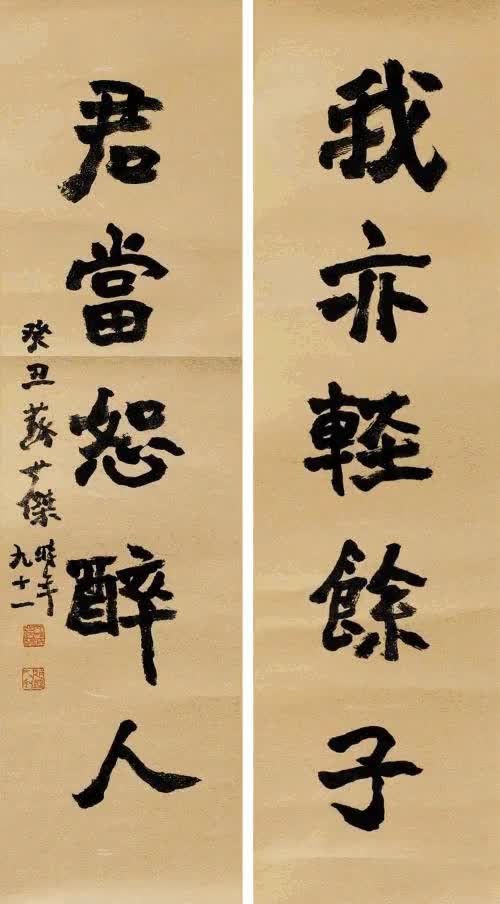 我亦軽餘子
君當恕醉人
癸丑蘇世傑時年
九十一